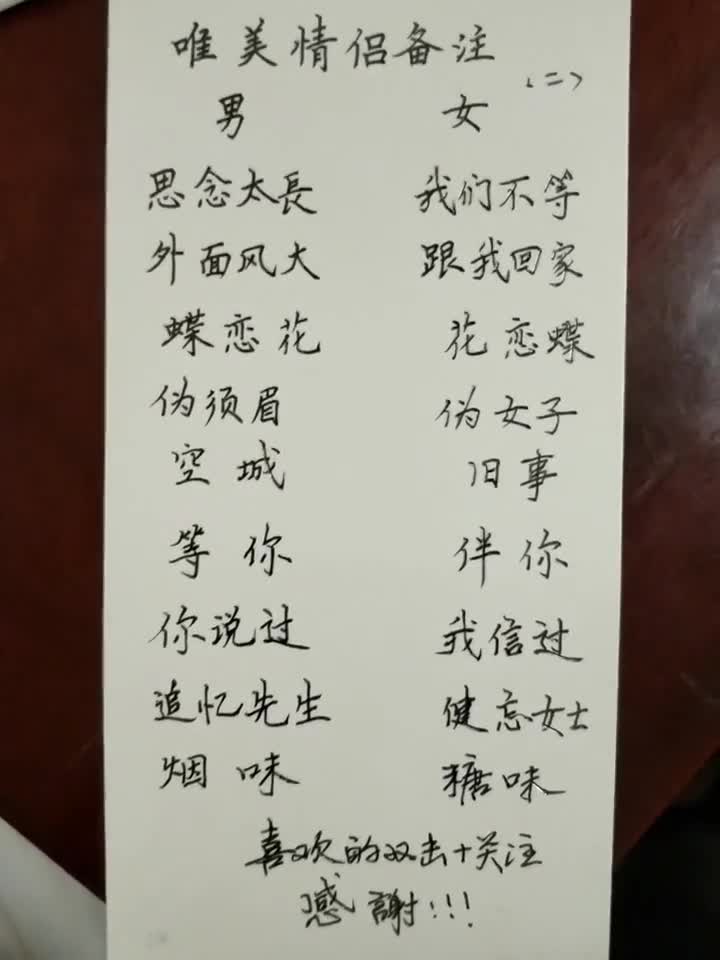 唯美情侣备注
(二)
男 女
思念太長 我们不等
外面风大 跟我回家
蝶恋花 花恋蝶
伪须眉 伪女子
空城 旧事
等你 伴你
你说过 我信过
追忆先生 健忘女士
烟味 糖味
喜欢的双击+关注
感謝!!!